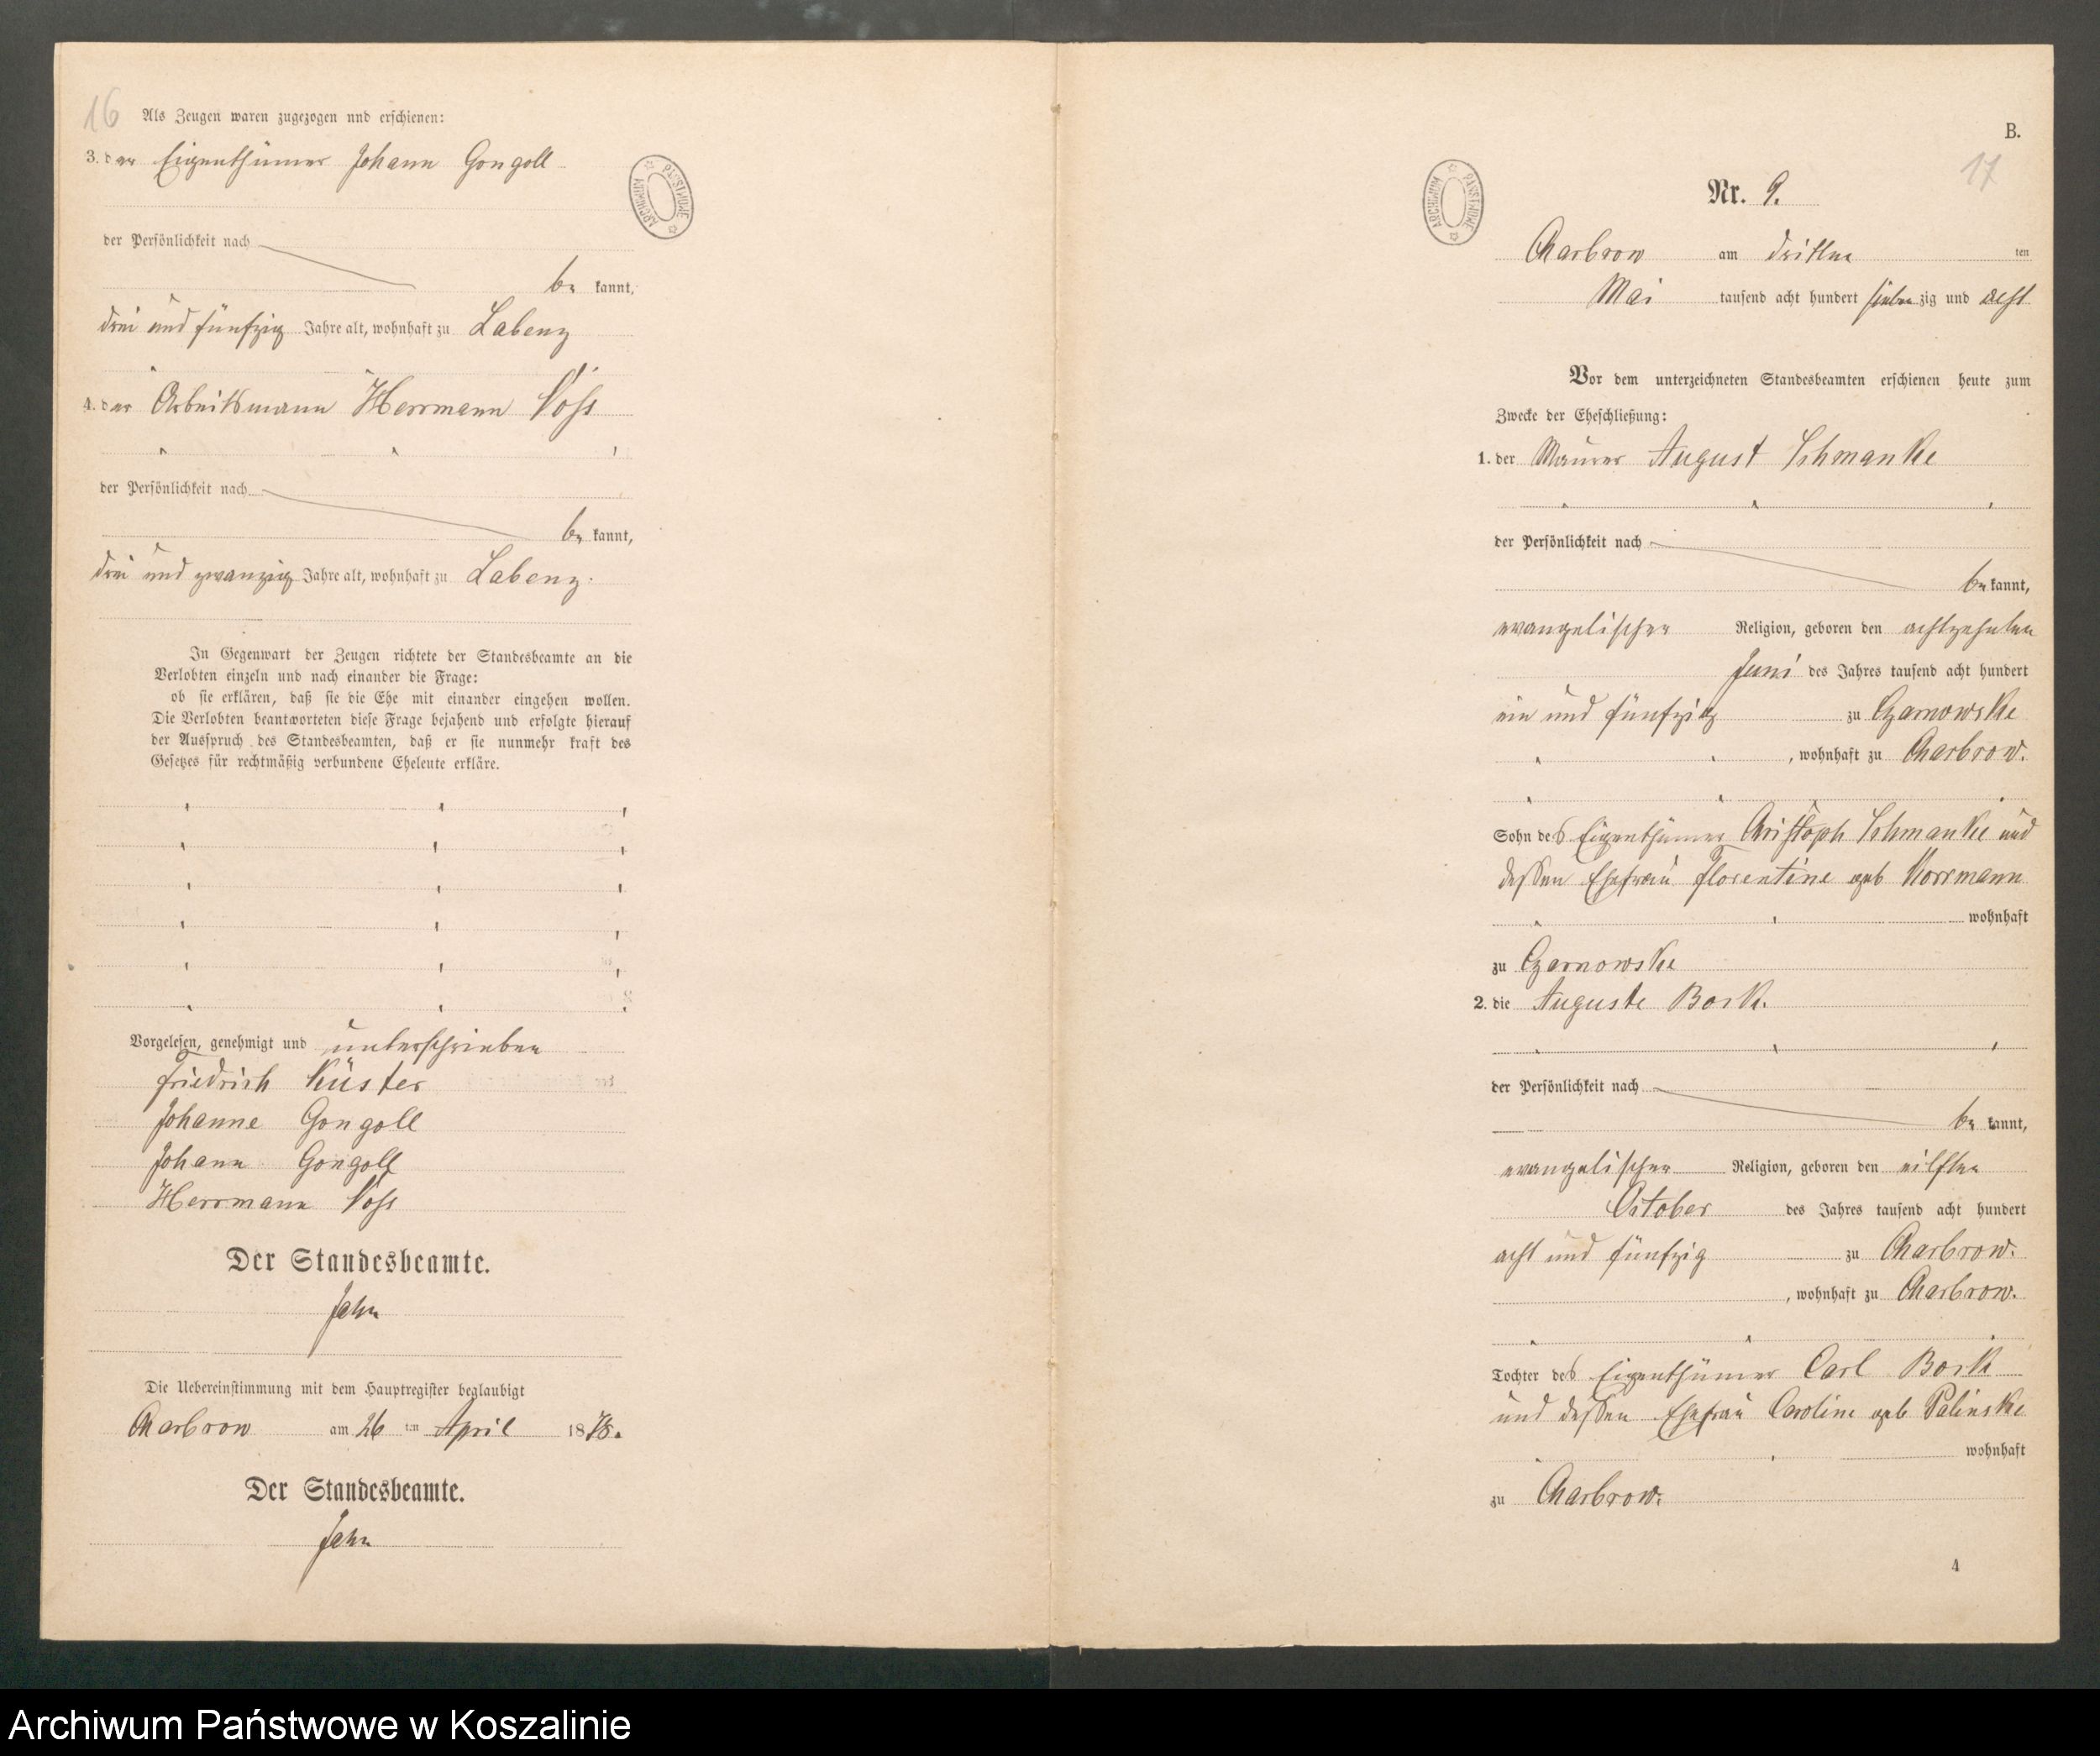 16
Als Zeugen waren zugezogen und erschienen:
3. der Eigenthümer Johann Gongoll
der Persönlichkeit nach
be kannt,
drei und fünfzig Jahre alt, wohnhaft zu Labenz
4. der Arbeitsmann Herrmann Voß
der Persönlichkeit nach
be kannt,
drei und zwanzig Jahre alt, wohnhaft zu Labenz.
In Gegenwart der Zeugen richtete der Standesbeamte an die
Verlobten einzeln und nach einander die Frage:
ob sie erklären, daß sie die Ehe mit einander eingehen wollen.
Die Verlobten beantworteten diese Frage bejahend und erfolgte hierauf
der Ausspruch des Standesbeamten, daß er sie nunmehr kraft des
Gesetzes für rechtmäßig verbundene Eheleute erkläre.
Vorgelesen, genehmigt und unterschrieben
Friedrich Küster
Johanne Gongoll
Johann Gongoll
Herrmann Voß
Der Standesbeamte.
Jahn
Die Uebereinstimmung mit dem Hauptregister beglaubigt
Charbrow am 26 ten April 1878.
Der Standesbeamte.
Jahn
ARCHIWUM PAŃSTWOWE
ARCHIWUM PAŃSTWOWE
B.
17
Nr. 9.
Charbrow am dritten ten
Mai tausend acht hundert sieben zig und acht
Vor dem unterzeichneten Standesbeamten erschienen heute zum
Zwecke der Eheschließung:
1. der Maurer August Schmanke
der Persönlichkeit nach
be kannt,
evangelischer Religion, geboren den achtzehnten
Juni des Jahres tausend acht hundert
ein und fünfzig zu Czarnowske
, wohnhaft zu Charbrow.
Sohn des Eigenthümer Christoph Schmanke und
dessen Ehefrau Florentine geb Norrmann
wohnhaft
zu Czarnowske
2. die Auguste Bork.
der Persönlichkeit nach
be kannt,
evangelischer Religion, geboren den eilften
October des Jahres tausend acht hundert
acht und fünfzig zu Charbrow.
, wohnhaft zu Charbrow.
Tochter des Eigenthümer Carl Bork
und dessen Ehefrau Caroline geb Palinske
wohnhaft
zu Charbrow.
4
Archiwum Państwowe w Koszalinie